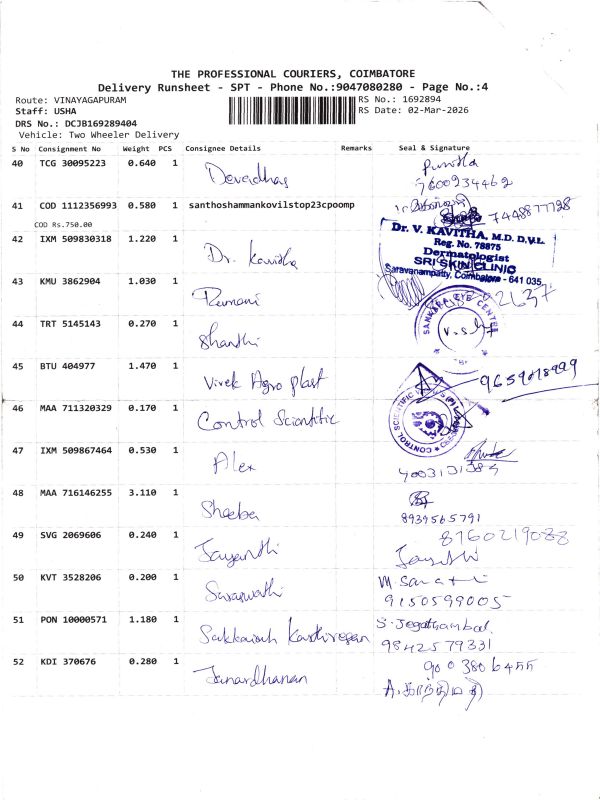 THE PROFESSIONAL COURIERS, COIMBATORE
Delivery Runsheet - SPT - Phone No.:9047080280 - Page No.:4
Route: VINAYAGAPURAM
RS No.: 1692894
Staff: USHA
RS Date: 02-Mar-2026
DRS No.: DCJB169289404
Vehicle: Two Wheeler Delivery
S No Consignment No Weight PCS Consignee Details Remarks Seal & Signature
40 TCG 30095223 0.640 1 Devadhas Punitha
7600934462
41 COD 1112356993 0.580 1 santhoshammankovilstop23cpoomp
7448877728
COD Rs.750.00
42 IXM 509830318 1.220 1 Dr. Kavitha
Dr. V. KAVITHA, M.D. D.V.L.
Reg. No. 78875
Dermatologist
SRI SKIN CLINIC
Saravanampatty, Coimbatore - 641 035.
43 KMU 3862904 1.030 1 Ramani
44 TRT 5145143 0.270 1 Shanthi
SANKARA EYE CENTRE
45 BTU 404977 1.470 1 Vivek Agro plast
9659018999
46 MAA 711320329 0.170 1 Control Scientific
47 IXM 509867464 0.530 1 Alex
48 MAA 716146255 3.110 1 Sheeba
8939565791
49 SVG 2069606 0.240 1 Jayanthi
8760219088
Jayanthi
50 KVT 3528206 0.200 1 Saraswathi
9150599005
51 PON 10000571 1.180 1 Sakkaiah Karthikeyan S. Jegathambal
9842579331
52 KDI 370676 0.280 1 Janardhanan
9003806455
A. காந்திமதி